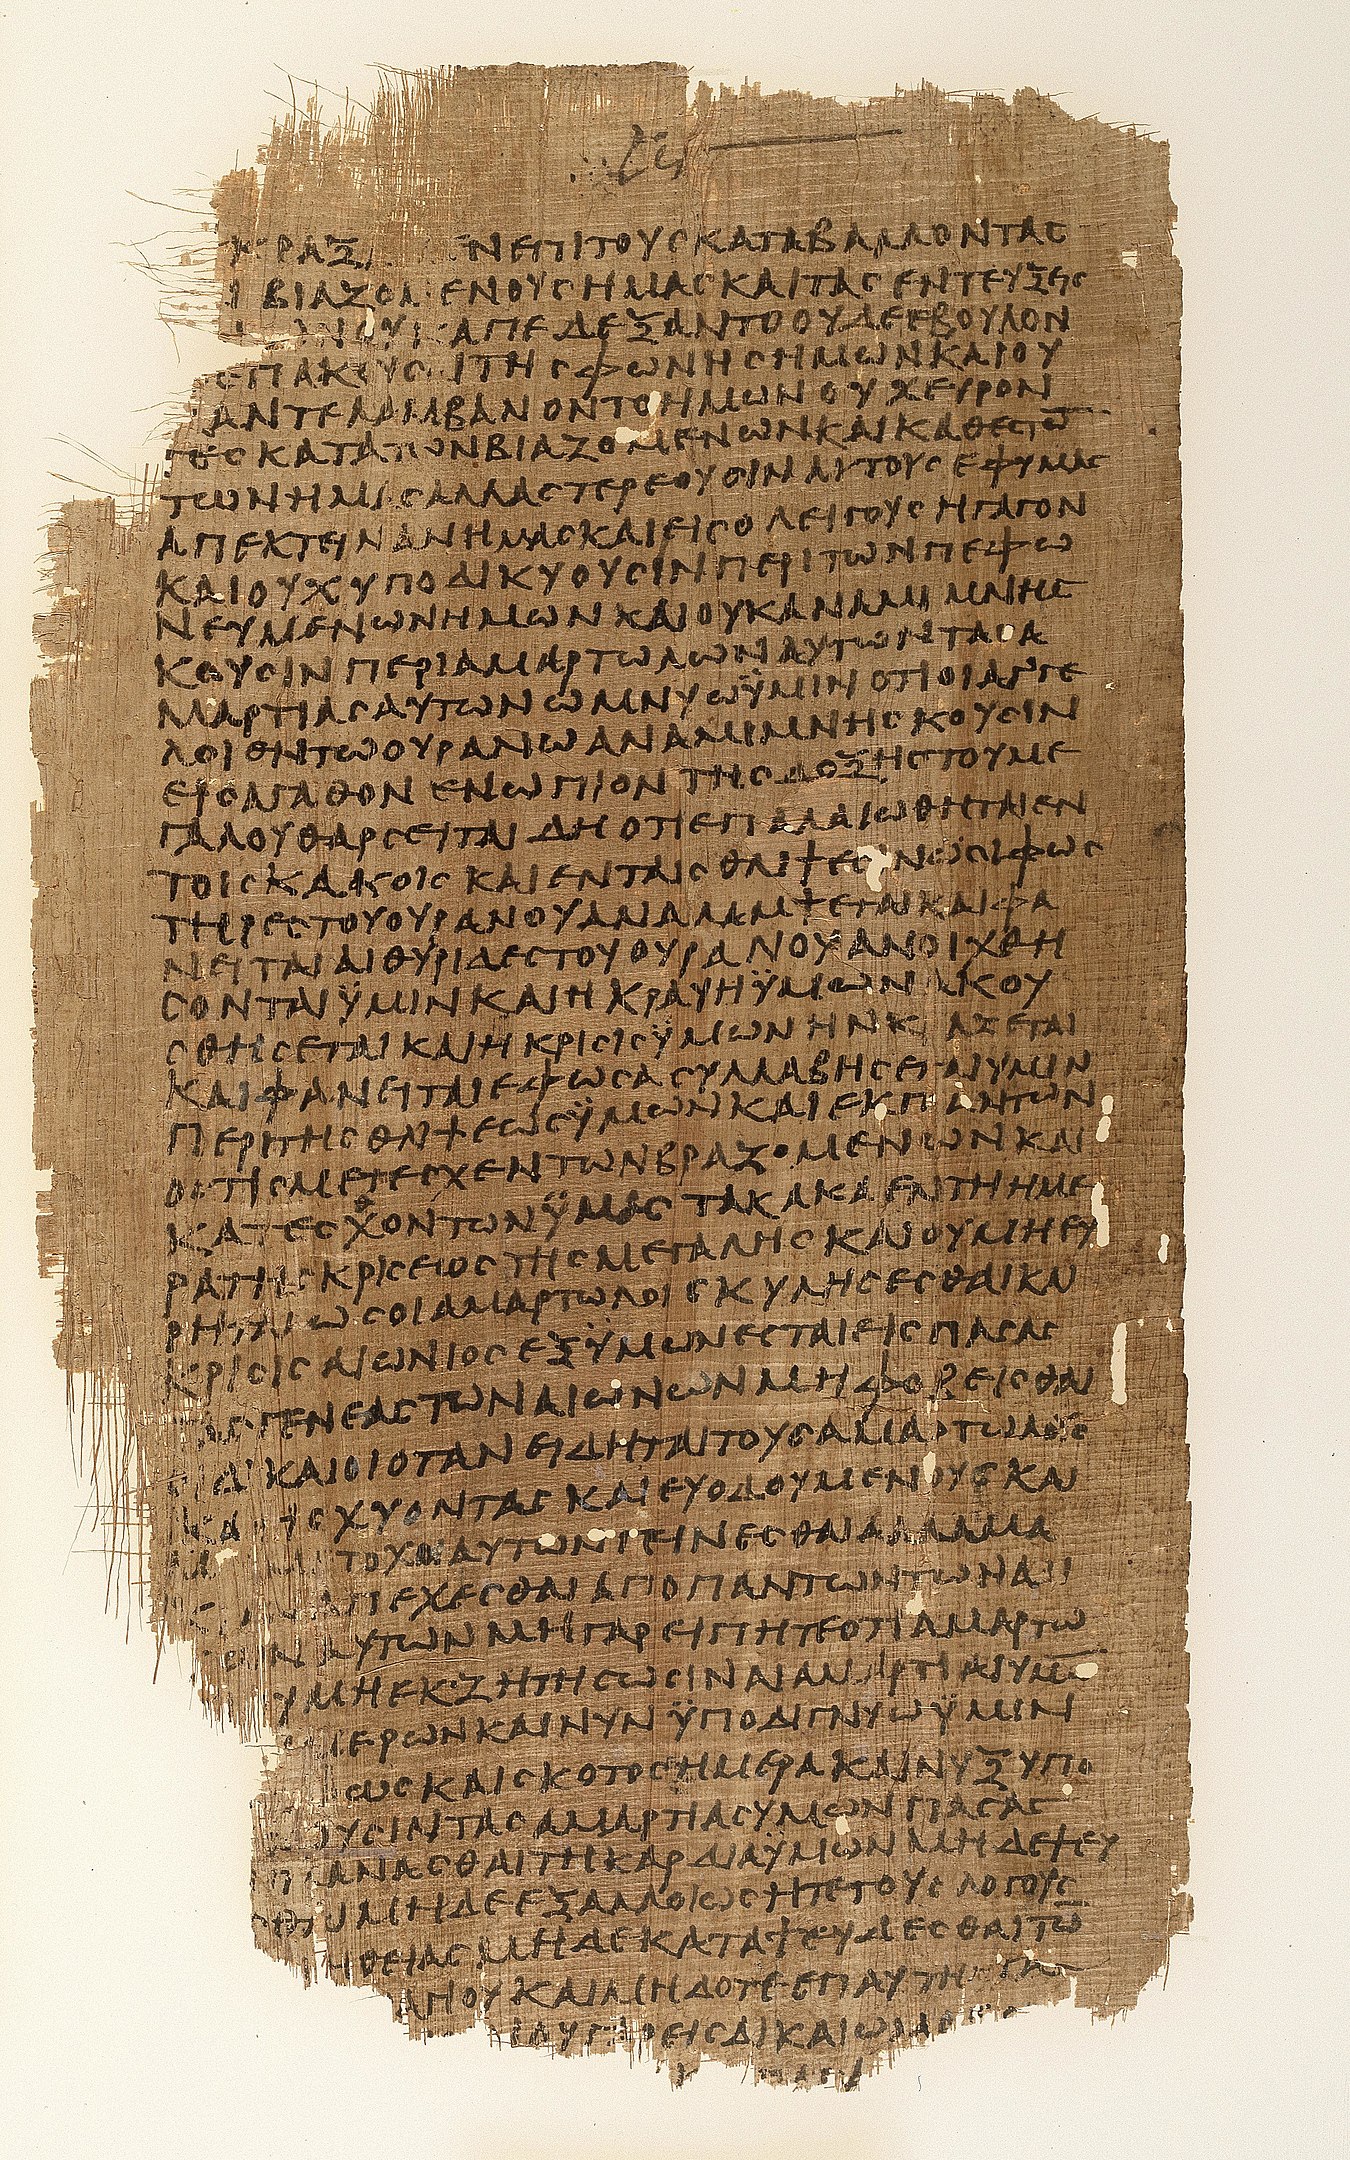 ΚΡΑΞ ΕΝ ΕΠΙ ΤΟΥϹ ΚΑΤΑΒΑΛΛΟΝΤΑϹ
ΒΙΑΖΟΜΕΝΟΥϹ ΗΜΑϹ ΚΑΙ ΤΑϹ ΕΝΤΕΥΞΕΙϹ
ΑΠΕΔΕΞΑΝΤΟ ΟΥΔΕ ΕΒΟΥΛΟΝ
ΕΠΑΚΟΥϹΑΙ ΤΗϹ ΦΩΝΗϹ ΗΜΩΝ ΚΑΙ ΟΥ
ΑΝΤΕΛΑΜΒΑΝΟΝΤΟ ΗΜΩΝ ΟΥΧ ΕΥΡΟΝ
ΤΕϹ ΚΑΤΑ ΤΩΝ ΒΙΑΖΟΜΕΝΩΝ ΚΑΙ ΚΑΤΕϹΘΟ̅
ΤΩΝ ΗΜΑϹ ΑΛΛΑ ϹΤΕΡΕΟΥϹΙΝ ΑΥΤΟΥϹ ΕΦ ΥΜΑϹ
ΑΠΕΚΤΕΙΝΑΝ ΗΜΑϹ ΚΑΙ ΕΙϹ ΟΛΕΙΓΟΥϹ ΗΓΑΓΟΝ
ΚΑΙ ΟΥΧ ΥΠΟΔΙΚΥΟΥϹΙΝ ΠΕΡΙ ΤΩΝ ΠΕΦΩ
ΝΕΥΜΕΝΩΝ ΗΜΩΝ ΚΑΙ ΟΥΚ ΑΝΑΜΙΜΝΗϹ
ΚΟΥϹΙΝ ΠΕΡΙ ΑΜΑΡΤΩΛΩΝ ΑΥΤΩΝ ΤΑϹ Α
ΜΑΡΤΙΑϹ ΑΥΤΩΝ ΟΜΝΥΩ ΫΜΙΝ ΟΤΙ ΟΙ ΑΓΓΕ
ΛΟΙ ΕΝ ΤΩ ΟΥΡΑΝΩ ΑΝΑΜΙΜΝΗϹΚΟΥϹΙΝ
ΕΙϹ ΑΓΑΘΟΝ ΕΝΩΠΙΟΝ ΤΗϹ ΔΟΞΗϹ ΤΟΥ ΜΕ
ΓΑΛΟΥ ΘΑΡϹΕΙΤΑΙ ΔΗ ΟΤΙ ΕΠΑΛΑΙΩΘΗΤΑΙ ΕΝ
ΤΟΙϹ ΚΑΚΟΙϹ ΚΑΙ ΕΝ ΤΑΙϹ ΘΛΙΨΕϹΙΝ ΩϹΙ ΦΩϹ
ΤΗΡΕϹ ΤΟΥ ΟΥΡΑΝΟΥ ΑΝΑΛΑΜΨΕΤΑΙ ΚΑΙ ΦΑ
ΝΕΙΤΑΙ ΑΙ ΘΥΡΙΔΕϹ ΤΟΥ ΟΥΡΑΝΟΥ ΑΝΟΙΧΘΗ
ϹΟΝΤΑΙ ΫΜΙΝ ΚΑΙ Η ΚΡΑΥΗ ΫΜΩΝ ΑΚΟΥ
ϹΘΗϹΕΤΑΙ ΚΑΙ Η ΚΡΙϹΙϹ ΫΜΩΝ ΗΝ ΚΡΑΖΕΤΑΙ
ΚΑΙ ΦΑΝΕΙΤΑΙ ΕΦ ΩϹΑ ϹΥΛΛΑΒΗϹΕΤΑΙ ΥΜΙΝ
ΠΕΡΙ ΤΗϹ ΘΛΙΨΕΩϹ ΫΜΩΝ ΚΑΙ ΕΚ ΠΑΝΤΩΝ
ΟϹΤΙϹ ΜΕΤΕϹΧΕΝ ΤΩΝ ΒΡΑΖΟΜΕΝΩΝ ΚΑΙ
ΚΑΤΕϹΘΟΝΤΩΝ ΫΜΑϹ ΤΑ ΚΑΚΑ ΕΝ ΤΗ ΗΜΕ
ΡΑ ΤΗϹ ΚΡΙϹΕΙΟϹ ΤΗϹ ΜΕΓΑΛΗϹ ΚΑΙ ΟΥ ΜΗ ΕΥ
ΡΗΤΑΙ ΩϹ ΟΙ ΑΜΑΡΤΩΛΟΙ ϹΚΥΛΗϹΕϹΘΑΙ ΚΑΙ
ΚΡΙϹΙϹ ΑΙΩΝΙΟϹ ΕΞ ΫΜΩΝ ΕϹΤΑΙ ΕΙϹ ΠΑϹΑϹ
ΤΑϹ ΓΕΝΕΑϹ ΤΩΝ ΑΙΩΝΩΝ ΜΗ ΦΟΒΕΙϹΘΑΙ
ΟΙ ΔΙΚΑΙΟΙ ΟΤΑΝ ΕΙΔΗΤΑΙ ΤΟΥϹ ΑΜΑΡΤΩΛΟΥϹ
ΚΑΤΙϹΧΥΟΝΤΑϹ ΚΑΙ ΕΥΟΔΟΥΜΕΝΟΥϹ ΚΑΙ
ΤΟΧΟΙ ΑΥΤΩΝ ΓΕΙΝΕϹΘΑΙ ΑΛΛΑ ΜΑ
ΑΠΕΧΕϹΘΑΙ ΑΠΟ ΠΑΝΤΩΝ ΤΩΝ ΑΔΙ
ΑΥΤΩΝ ΜΗ ΓΑΡ ΕΙΠΗΤΕ ΟΤΙ ΑΜΑΡΤΩ
ΟΥ ΜΗ ΕΚΖΗΤΗϹΩϹΙΝ ΑΙ ΑΜΑΡΤΙΑΙ ΥΜΩ̅
ΜΕΡΩΝ ΚΑΙ ΝΥΝ ΫΠΟΔΙΓΝΥΩ ΫΜΙΝ
ΦΩϹ ΚΑΙ ϹΚΟΤΟϹ ΗΜΕΡΑ ΚΑΙ ΝΥΞ ΥΠΟ
ΟΥϹΙΝ ΤΑϹ ΑΜΑΡΤΙΑϹ ΥΜΩΝ ΠΑϹΑϹ
ΠΛΑΝΑϹΘΑΙ ΤΗ ΚΑΡΔΙΑ ΫΜΩΝ ΜΗΔΕ ΨΕΥ
ΜΗΔΕ ΕΞΑΛΛΟΙΩϹΗΤΕ ΤΟΥϹ ΛΟΓΟΥϹ
ΗΘΕΙΑϹ ΜΗΔΕ ΚΑΤΑΨΕΥΔΕϹΘΑΙ ΤΩ̅
ΑΓΙΟΥ ΚΑΙ ΜΗ ΔΟΤΕ ΕΠΑ
ΟΥ ΓΑΡ ΕΙϹ ΔΙΚΑΙΩΜΑ